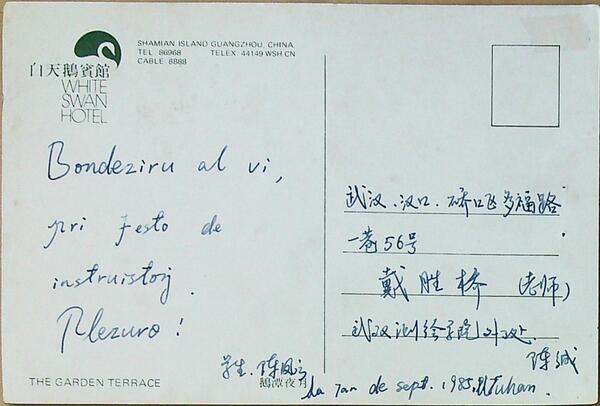 SHAMIAN ISLAND GUANGZHOU, CHINA.
TEL: 86968 TELEX: 44149 WSH CN
CABLE: 8888
白天鵝賓館
WHITE
SWAN
HOTEL
Bondeziru al vi,
pri festo de
instruistoj.
Plezuro!
学生.陈凤
THE GARDEN TERRACE
鵝潭夜月
武汉.汉口.硚口区多福路
一巷56号
戴胜桥(老师)
武汉测绘学院
陈诚
la 7an de sept. 1985, Wuhan.